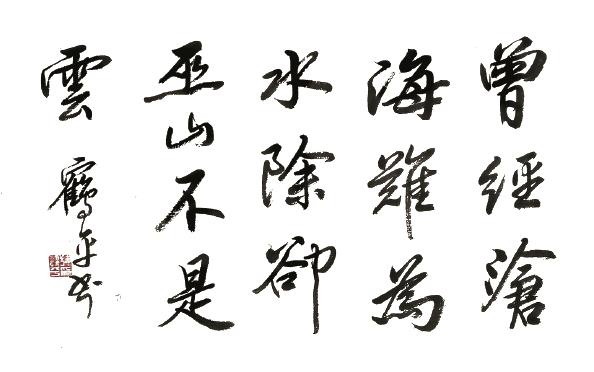 曾經滄
海難為
水除卻
巫山不是
雲 鶴平书